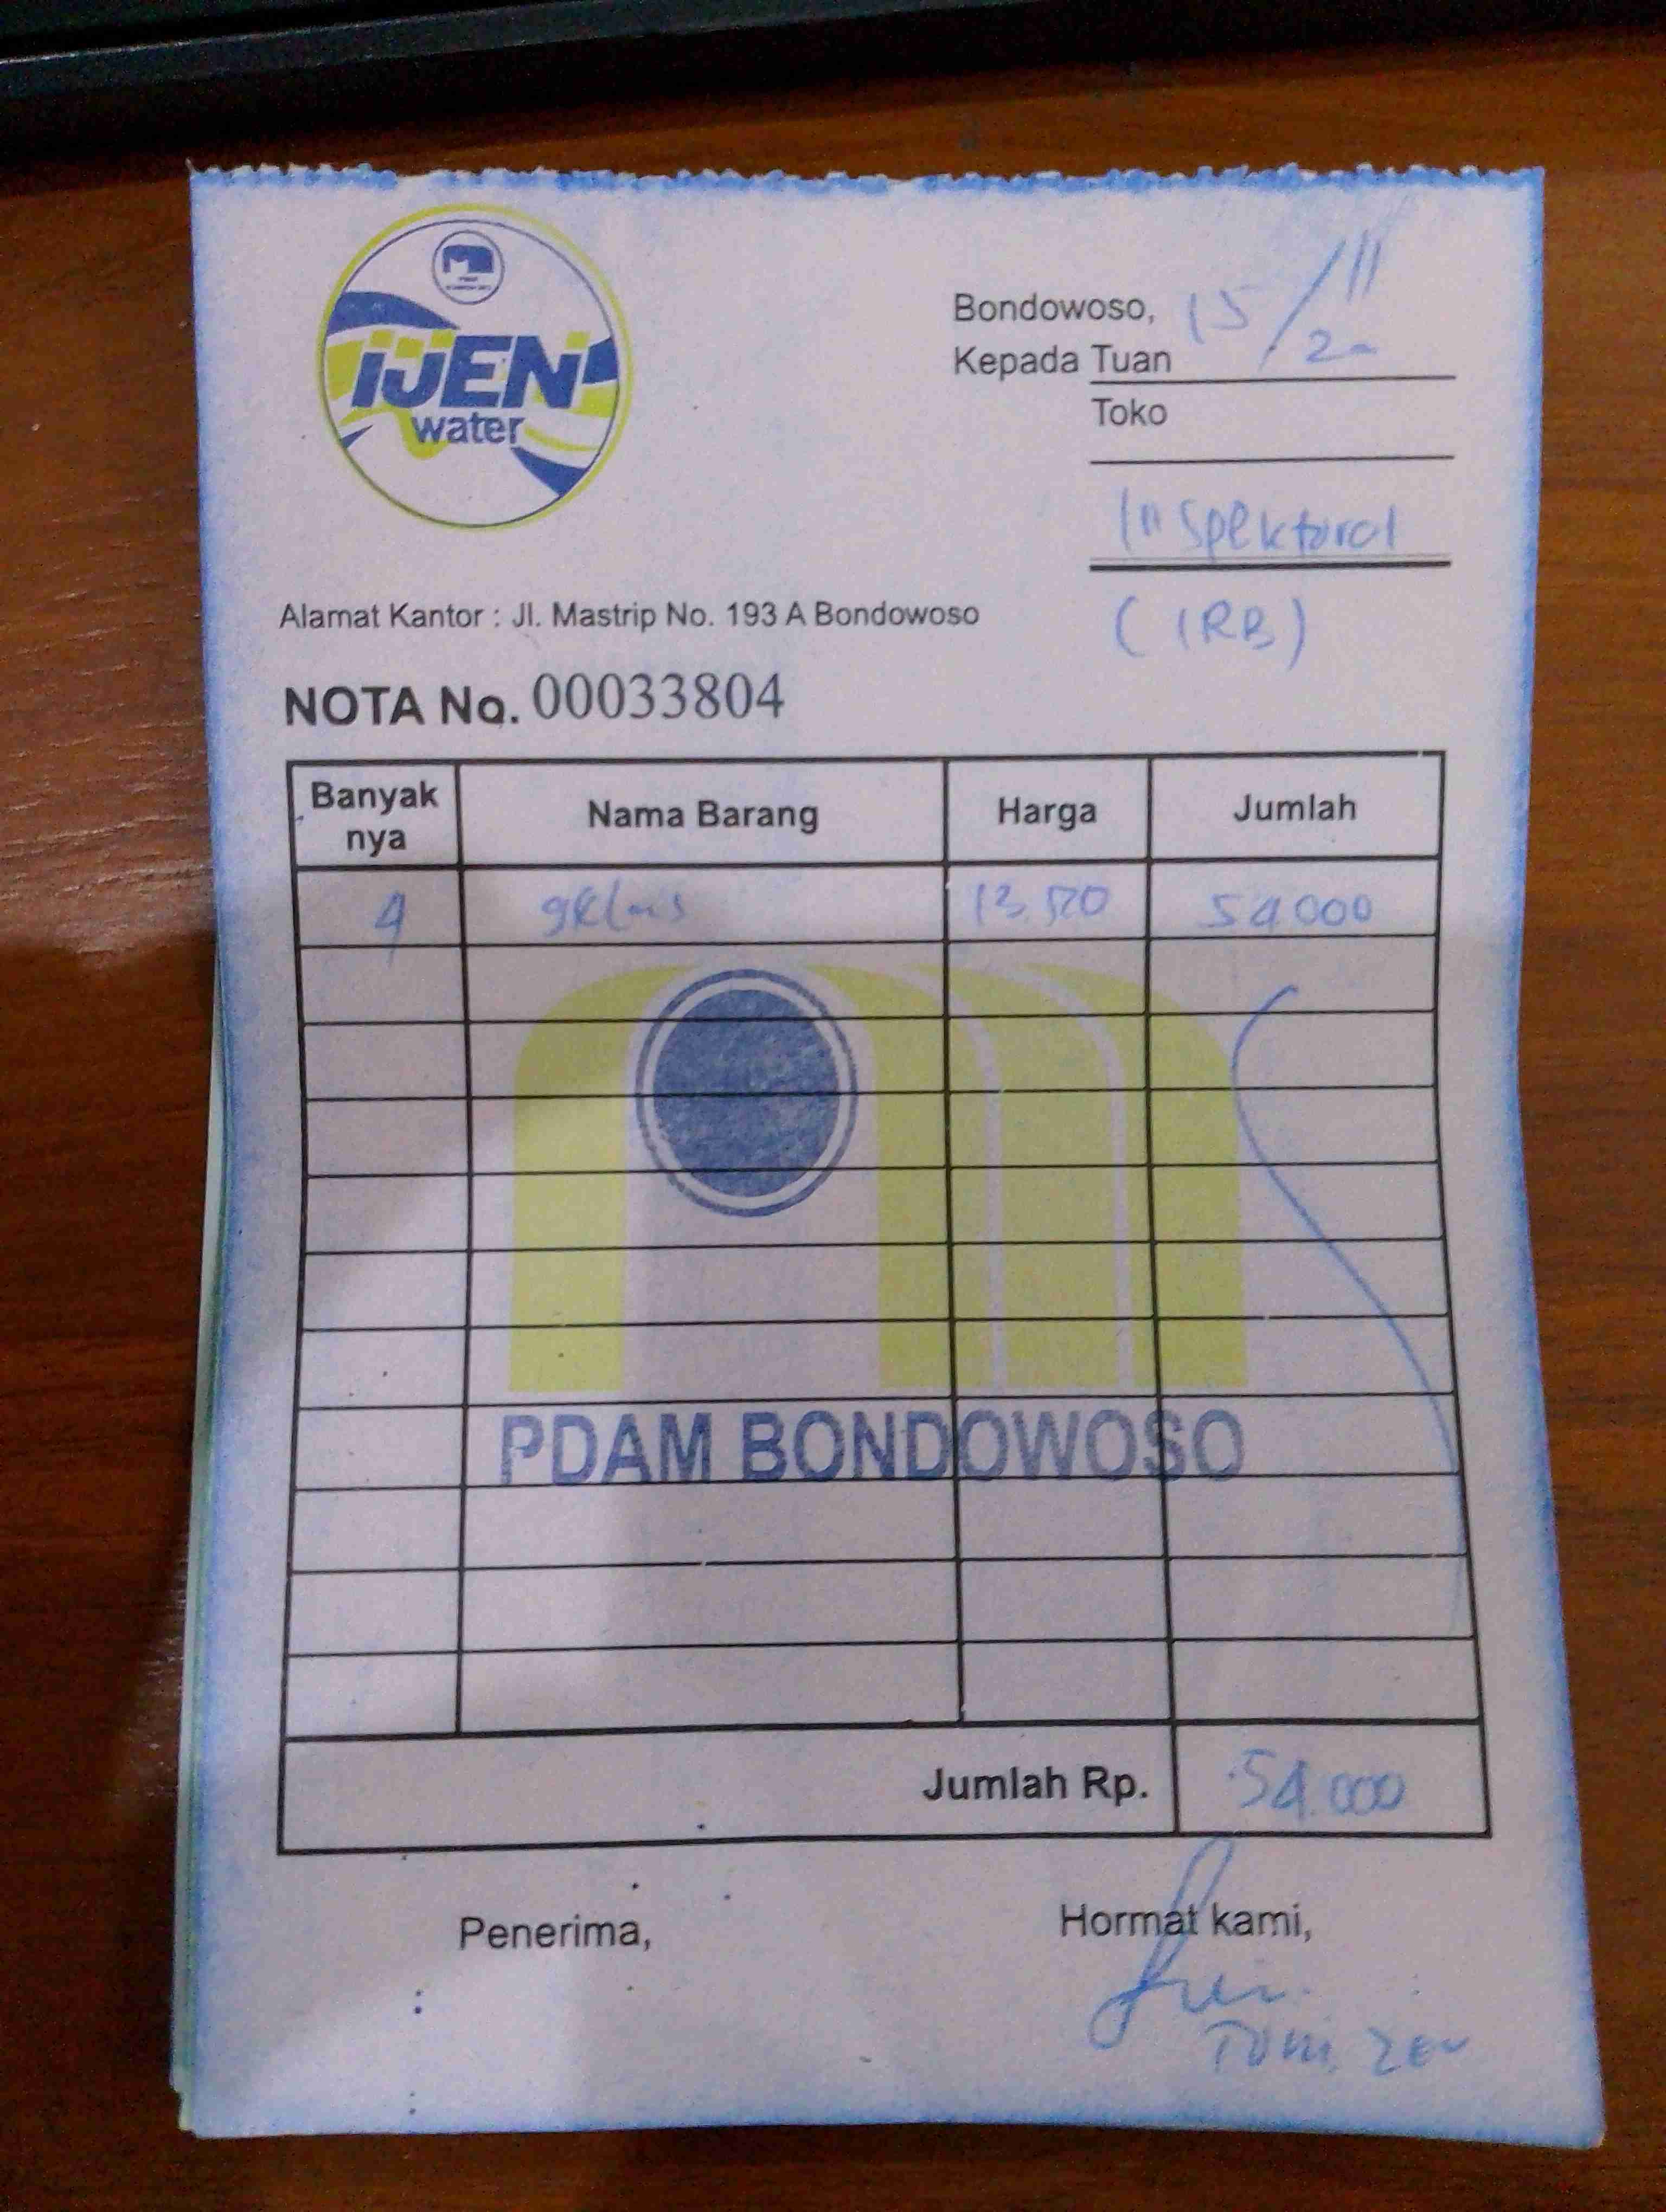 IJEN
water
Bondowoso, 15/11/20
Kepada Tuan
Toko
Inspektorat
(IRB)
Alamat Kantor : Jl. Mastrip No. 193 A Bondowoso
NOTA No. 00033804
Banyak nya Nama Barang Harga Jumlah
4 gelas 13.500 54.000
PDAM BONDOWOSO
Jumlah Rp. 54.000
Penerima, Hormat kami,